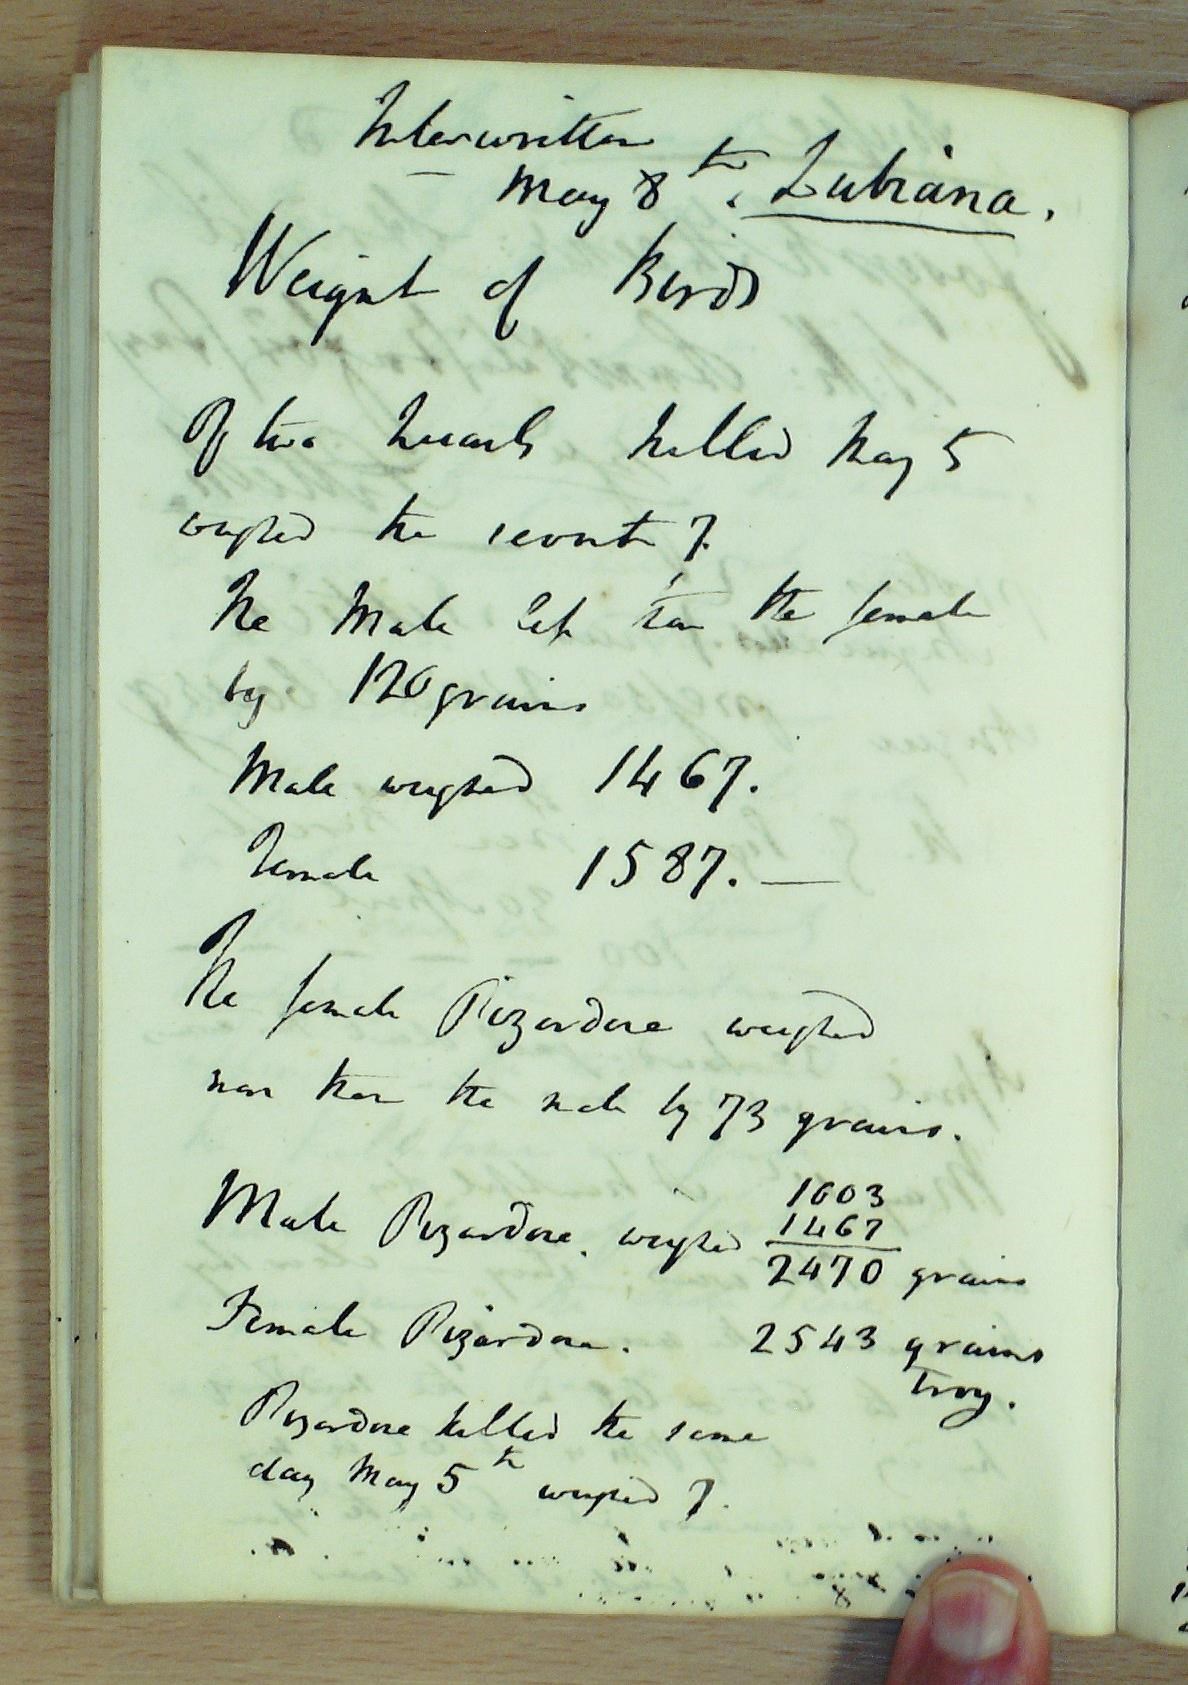 Interwritten
May 8th. Lubiana.
Weight of Birds
Of two killed May 5
weighed the seventh 7.
The Male less than the female
by 120 grains
Male weighed 1467.
Female 1587. —
The female Pizardone weighed
more than the male by 73 grains.
1003
1467
Male Pizardone. weighed 2470 grains
Female Pizardone. 2543 grains
Troy.
Pizardone killed the same
day May 5th weighed 7.